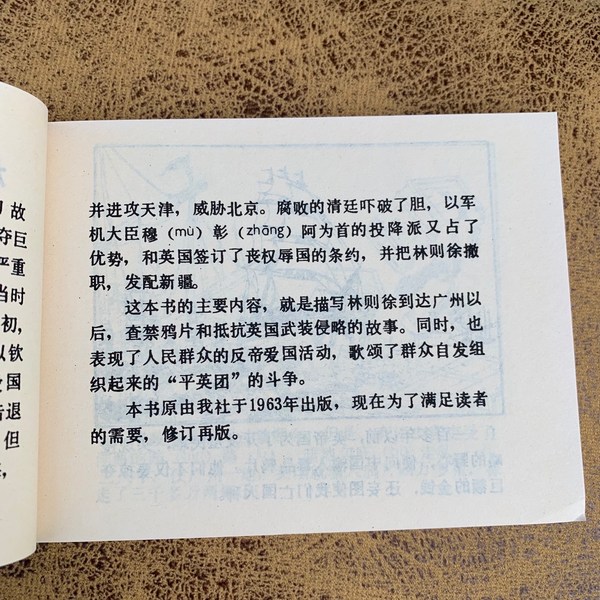 故
夺巨
严重
当时
初，
以钦
国
退
但
并进攻天津，威胁北京。腐败的清廷吓破了胆，以军
机大臣穆（mù）彰（zhāng）阿为首的投降派又占了
优势，和英国签订了丧权辱国的条约，并把林则徐撤
职，发配新疆。
这本书的主要内容，就是描写林则徐到达广州以
后，查禁鸦片和抵抗英国武装侵略的故事。同时，也
表现了人民群众的反帝爱国活动，歌颂了群众自发组
织起来的“平英团”的斗争。
本书原由我社于1963年出版，现在为了满足读者
的需要，修订再版。